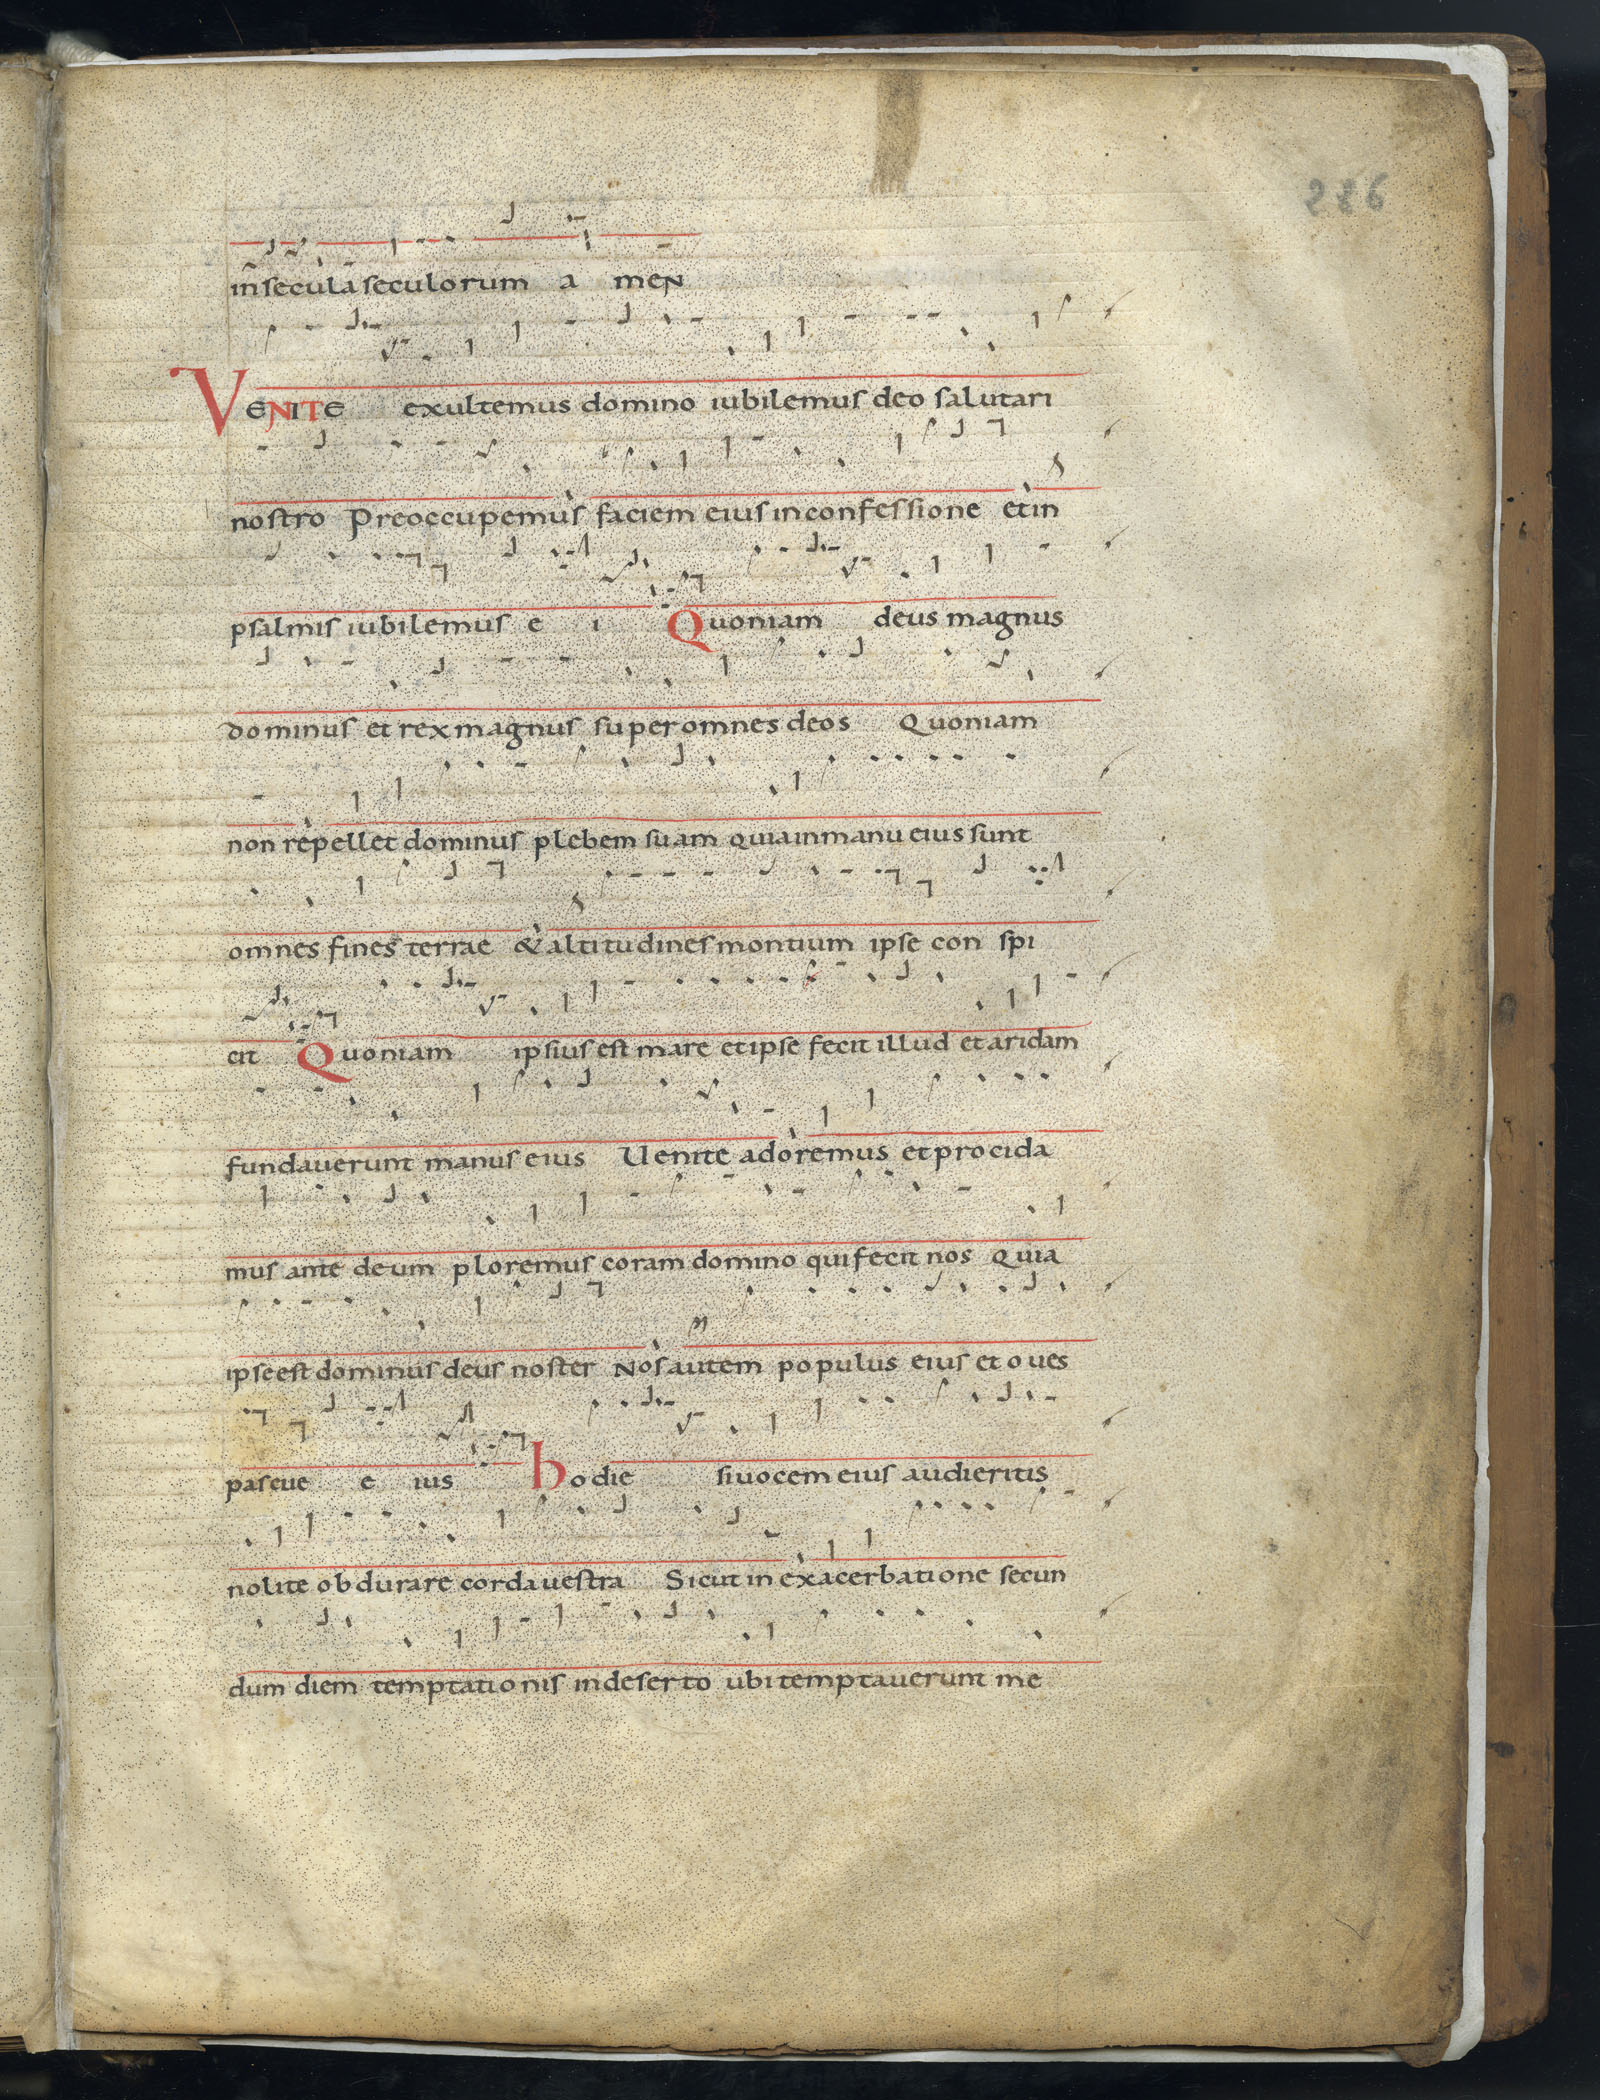 286
in secula seculorum a men
VENITE exultemus domino iubilemus deo salutari
nostro Preoccupemus faciem eius inconfessione etin
psalmis iubilemus e i Quoniam deus magnus
dominus et rex magnus super omnes deos Quoniam
non repellet dominus plebem suam quiainmanu eius sunt
omnes fines terrae & altitudines montium ipse con spi
cit Quoniam ipsius est mare et ipse fecit illud et aridam
fundaverunt manus eius Uenite adoremus et procida
mus ante deum ploremus coram domino qui fecit nos Quia
ipseest dominus deus noster Nos autem populus eius et oues
pascue e ius hodie siuocem eius audieritis
nolite obdurare corda uestra Sicut in exacerbatione secun
dum diem temptationis indeserto ubi temptauerunt me